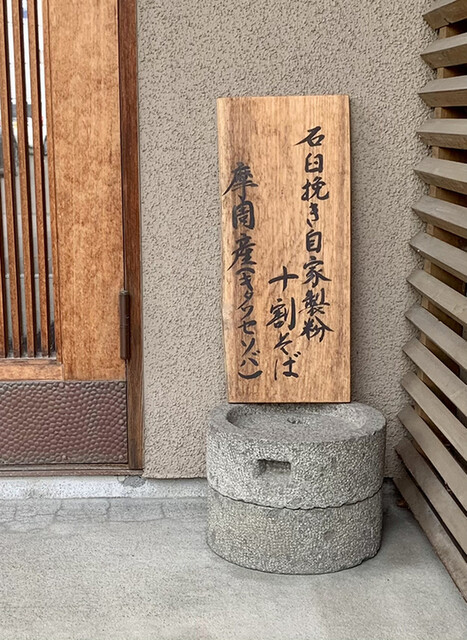 石臼挽き自家製粉
十割そば
摩周産(キタワセソバ)